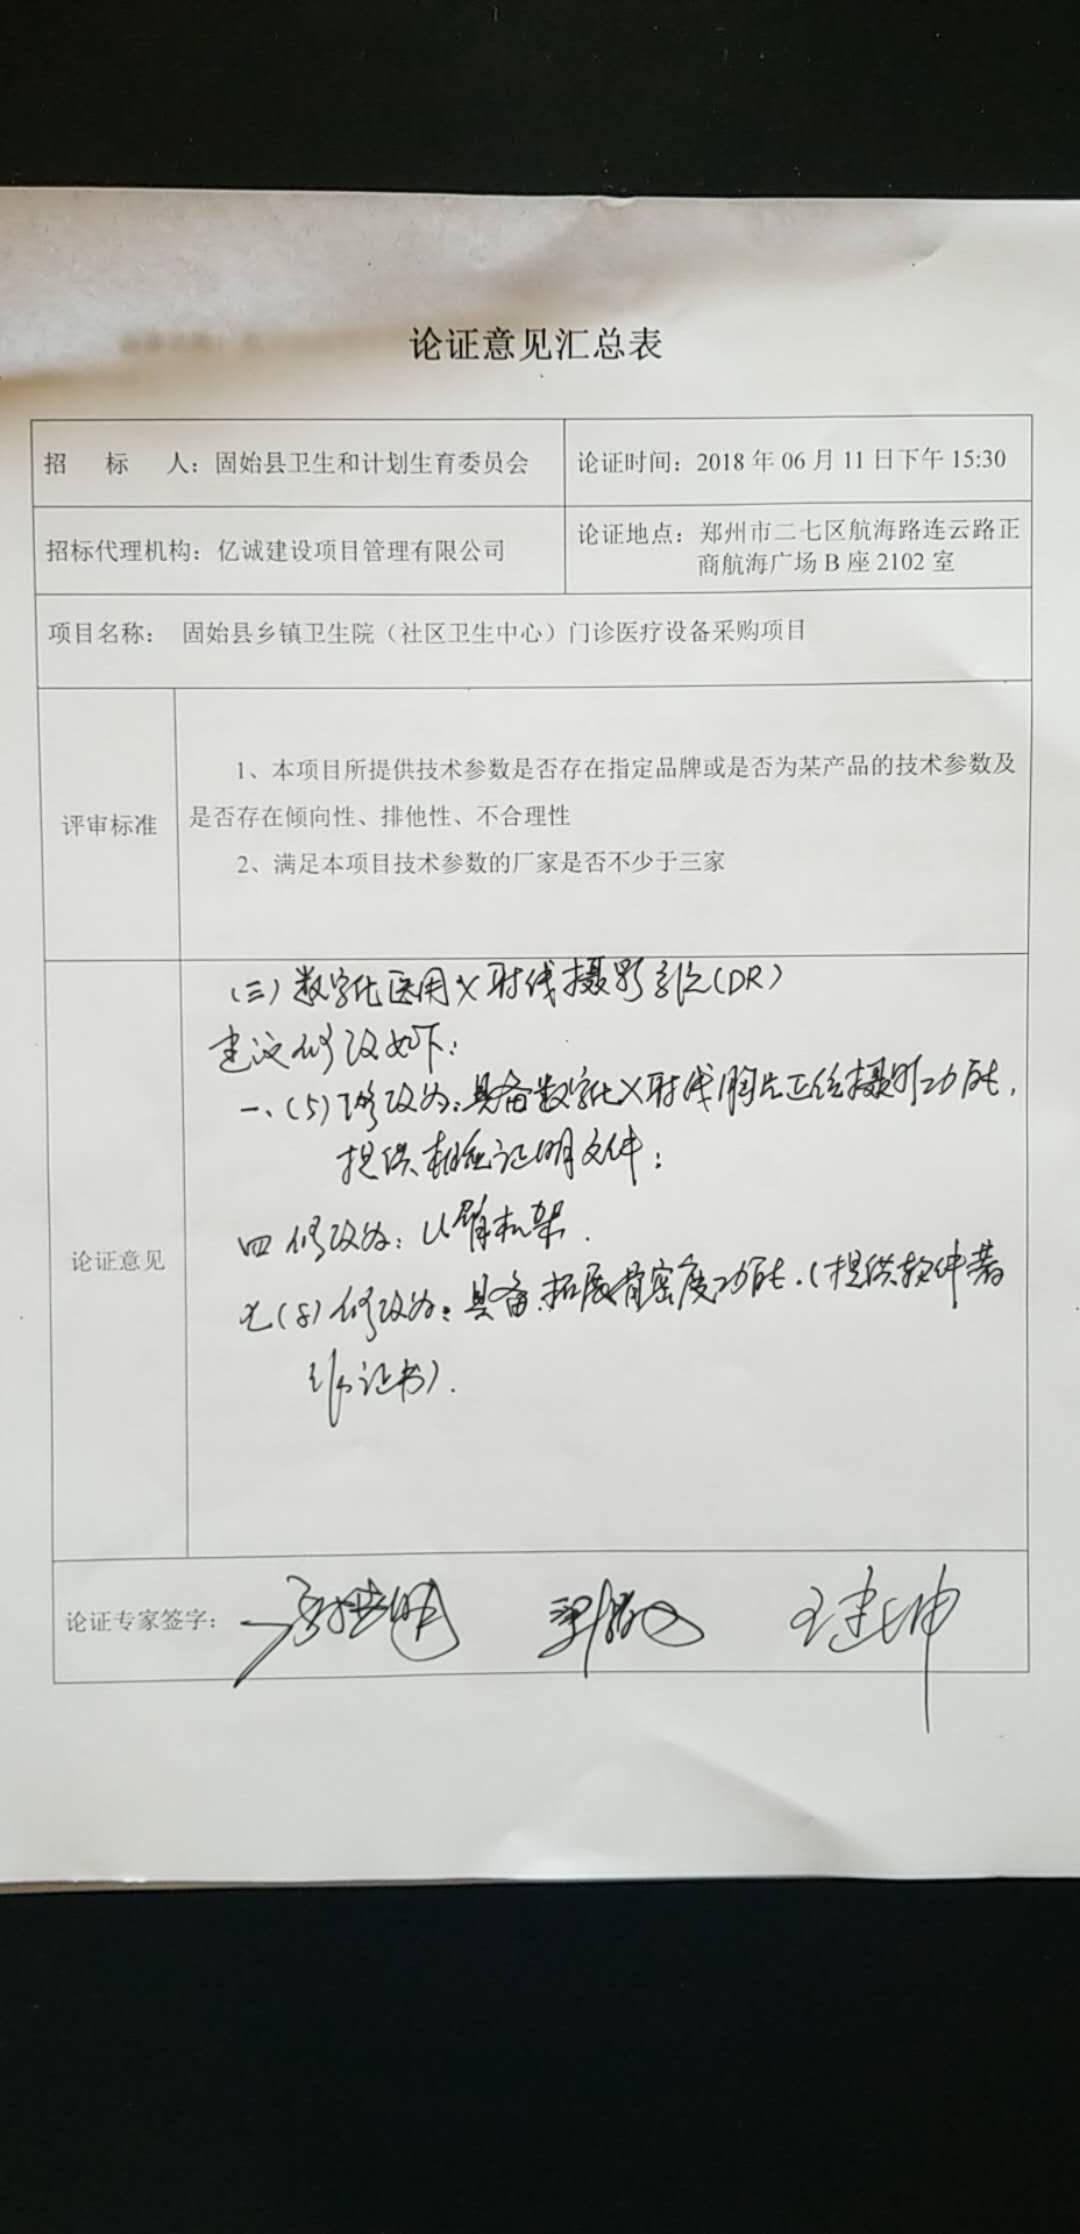 论证意见汇总表
招 标 人：固始县卫生和计划生育委员会
论证时间：2018 年 06 月 11 日下午 15:30
招标代理机构：亿诚建设项目管理有限公司
论证地点：郑州市二七区航海路连云路正
商航海广场 B 座 2102 室
项目名称： 固始县乡镇卫生院（社区卫生中心）门诊医疗设备采购项目
评审标准
1、本项目所提供技术参数是否存在指定品牌或是否为某产品的技术参数及
是否存在倾向性、排他性、不合理性
2、满足本项目技术参数的厂家是否不少于三家
论证意见
（三）数字化医用X射线摄影系统（DR）
建议修改如下：
一、(5)修改为：具备数字化X射线胸片正位摄影功能，
提供相应证明文件；
四 修改为：U臂机架．
七(8)修改为：具备拓展骨密度功能．（提供软件著
作证书）．
论证专家签字：
王建坤